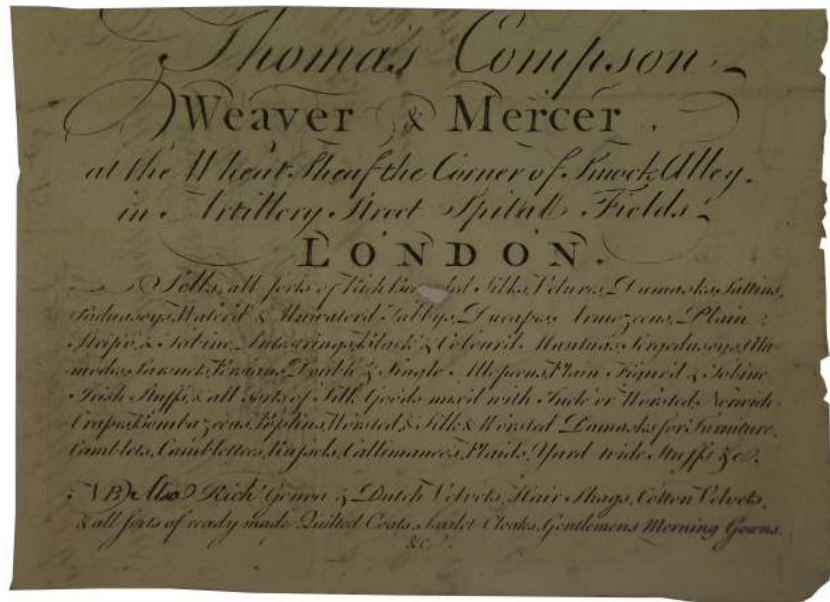 Thomas Compson
Weaver & Mercer
at the Wheat Sheaf the Corner of Smock Alley
in Artillery Street Spittal Fields
LONDON.
Sells, all sorts of Rich Silks, Velures, Damasks, Sattins,
Paduasoys, Water'd & Unwater'd Tabbys, Ducapes, Armozeens, Plain
Stripe & Tobine Lutestrings, Black & Colour'd Mantuas, Sergedusoys, Ala-
modes, Sarsnets, Persians, Double & Single Allopeens, Plain Figur'd & Tobine
Irish Stuffs, & all sorts of Silk Goods mixed with Incle or Worsted, Norwich
Crapes, Bombazeens, Poplins, Worsted, & Silk & Worsted Damasks for Furniture,
Camblets, Camblettees, Russels, Callimancoes, Plaids, Yard wide Stuffs &c.
NB Also Rich Genoa & Dutch Velvets, Hair Shags, Cotton Velvets,
& all sorts of ready made Quilted Coats, Scarlet Cloaks, Gentlemens Morning Gowns.
&c.